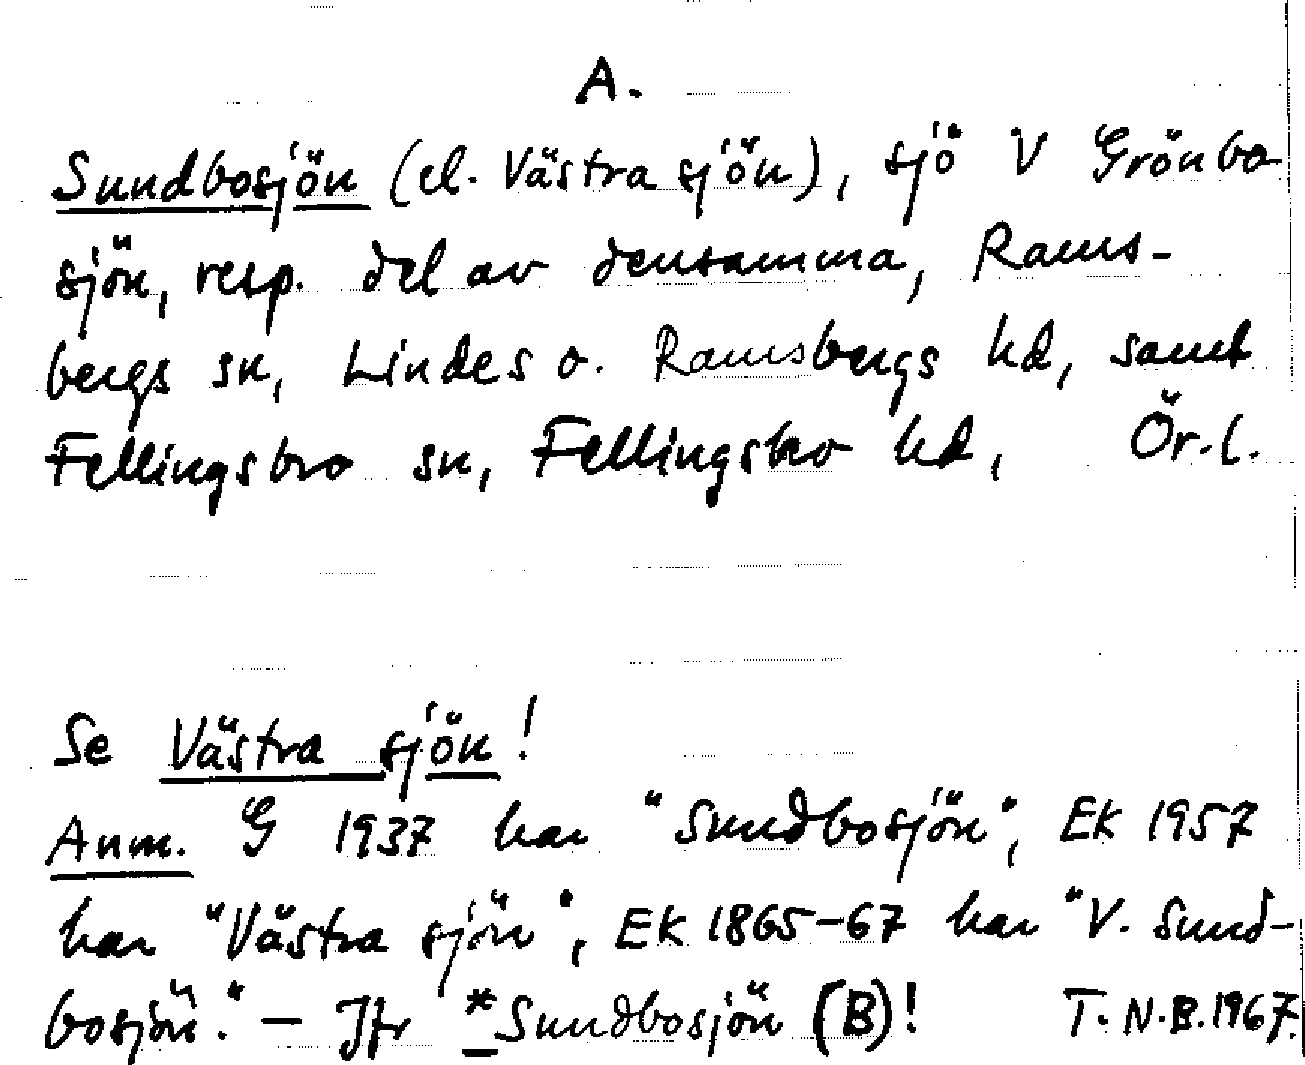 A.
Sundbosjön (el. Västra sjön), sjö V Grönbo-
sjön, resp. del av densamma, Rams-
bergs sn, Lindes o. Ramsbergs hd, samt
Fellingsbro sn, Fellingsbro hd, Ör.l.
Se Västra sjön!
Anm. G 1937 har "Sundbosjön", EK 1957
har "Västra sjön", EK 1865-67 har "V. Sund-
bosjön." – Jfr *Sundbosjön (B)! T.N.B.1967.